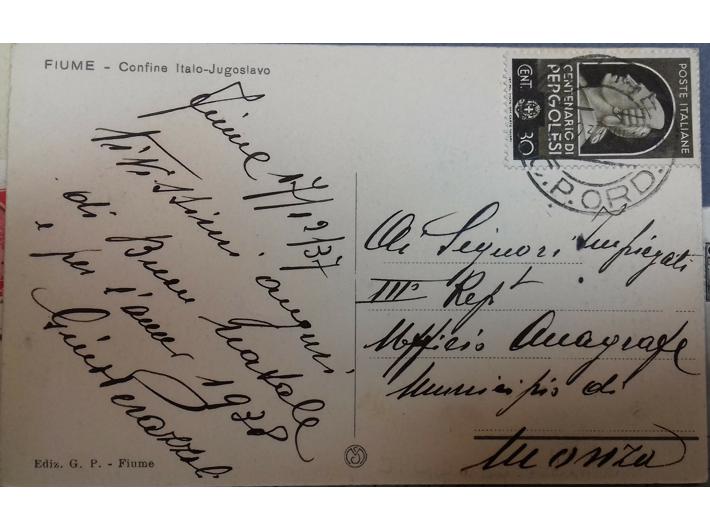 FIUME - Confine Italo-Jugoslavo
Fiume 17/12/37
Vivissimi auguri
di Buon Natale
e per l'anno 1938
Gino
Ediz. G. P. - Fiume
POSTE ITALIANE
CENTENARIO DI
PERGOLESI
CENT. 30
C.P.ORD.
Ai Signori Impiegati
III° Rept
Ufficio Anagrafe
Municipio di
Monza